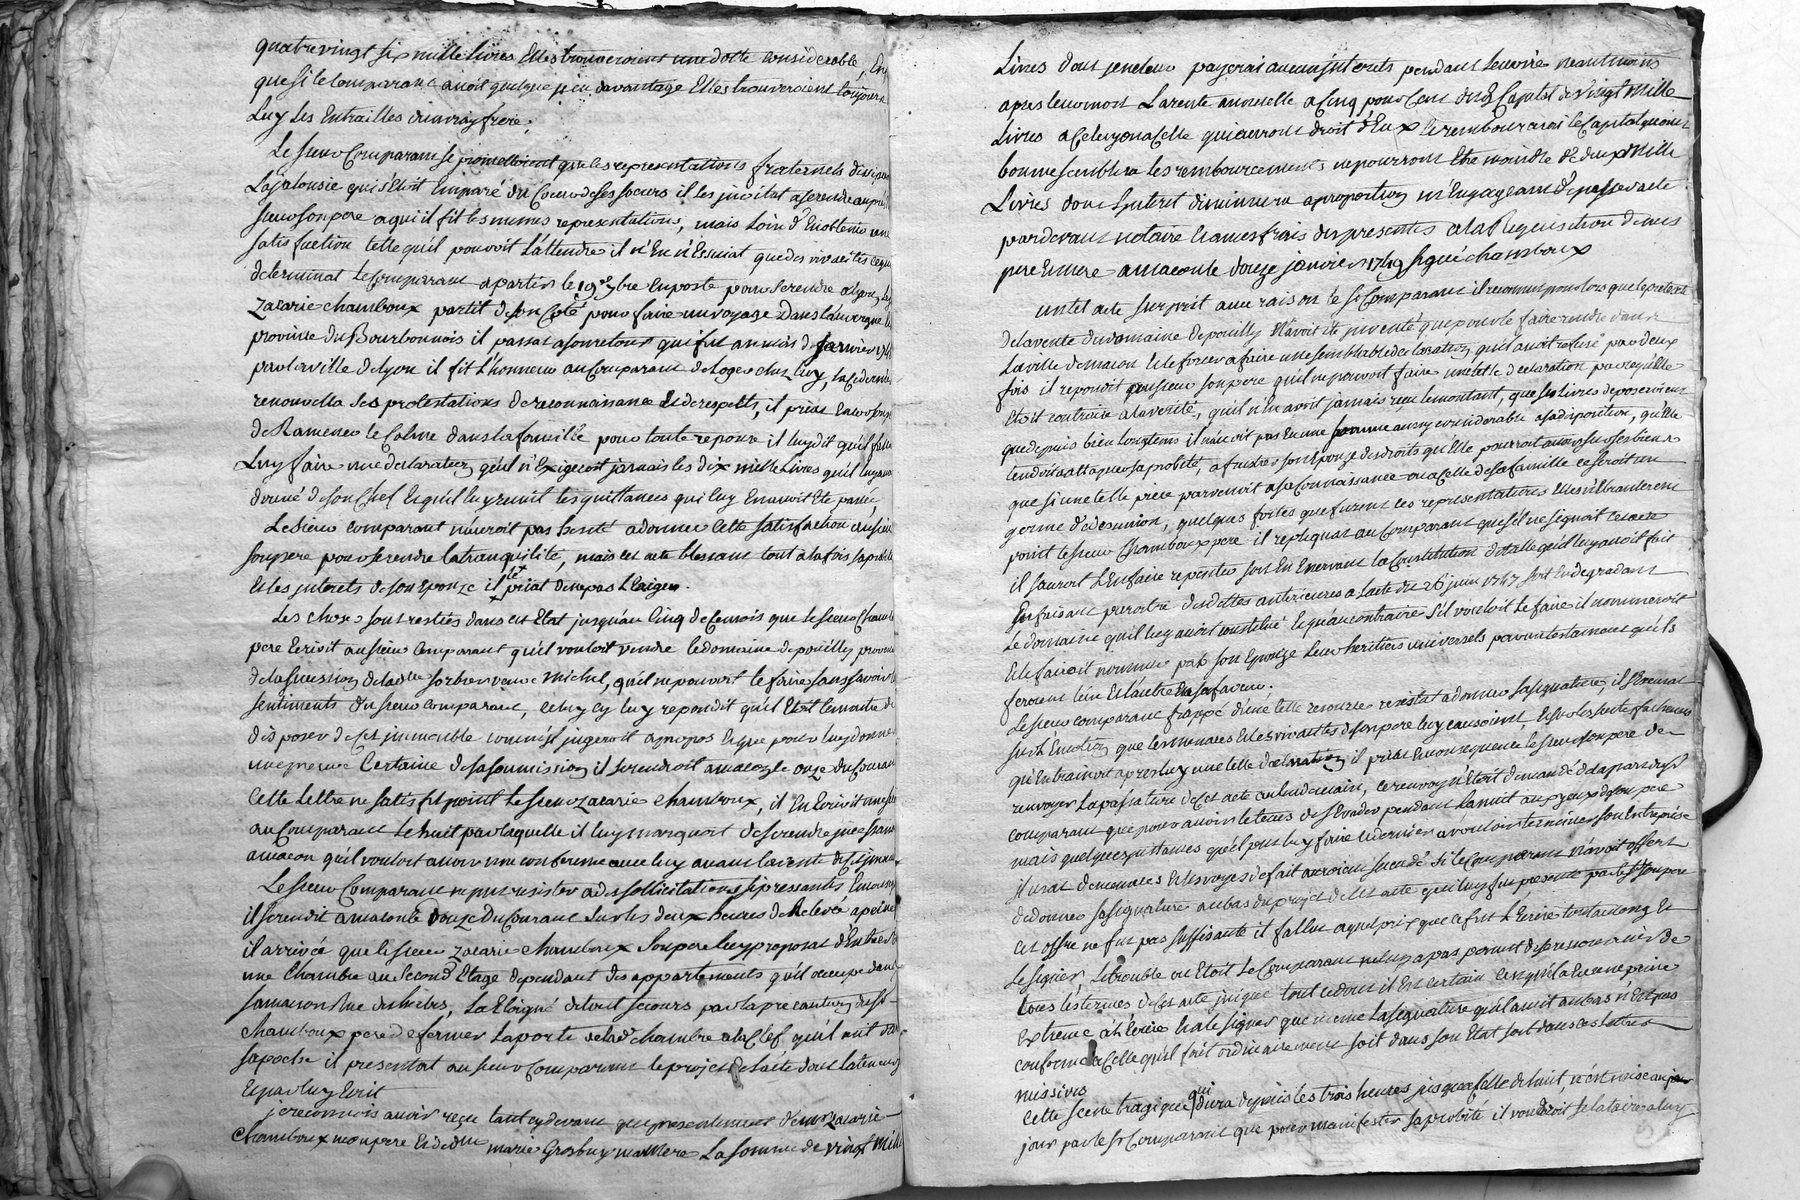 quatrevingt six mille livres Elles trouveroient une dotte considerable, En
que si le comparant avoit quelque peu davantage Elles trouveroient toujours
Luy les Entrailles d'un vray frere;
Le sieur Comparant se promettoit que les representations fraternels
La jalousie qui s'Etoit Emparé du Coeur de ses soeurs il les invitat a se rendre aupr
sieur son pere a qui il fit les memes representations, mais loin d'En obtenir une
satisfaction telle qu'il pouvoit L'attendre il n'En n'Essuiat que des vivacités ce qui
determinat le Comparant a partir le 19e 9bre En poste pour se rendre a Lyon, le sr
Zacarie chamboux partit de son Coté pour faire un voyage Dans l'auvergne la
province du Bourbonnois il passat a son retour qui fut au mois de Janvier 174
par la ville de Lyon il fit L'honneur au Comparant de loger chez luy, ce dernier
renouvella ses protestations de reconnoissance et de respects, il priat Encore son p
de Ramener le Calme dans la famille pour toute reponse il luy dit qu'il fall
Luy faire une declaration qu'il n'Exigeroit jamais les dix mille Livres qu'il luy avoit
donné de son Chef Et qu'il luy remit les quittances qui luy En avoit Eté passée,
Le sieur comparant n'auroit pas hesité a donner cette satisfaction au sieur
son pere pour se rendre la tranquilité, mais cet acte blessant tout a la fois sa probité
Et les interets de son Epouze il le priat de ne pas L'Exiger.
Les choses sont restées dans cet Etat jusqu'au Cinq de Ce mois que le sieur Chamb
pere Ecrivit au sieur Comparant qu'il vouloit vendre le domaine de pouilly proven
de la succession de lad lle sorbier veuve Michel, qu'il ne pouvoit le faire sans savoir l
sentiments du sieur comparant, celuy cy luy repondit qu'il Etoit le maitre de
disposer de cet immeuble comme il jugeroit apropos Et que pour luy donner
une preuve Certaine de sa soumission il se rendroit a macon le onze du Courant
Cette Lettre ne satisfit point le sieur Zacarie Chamboux, il En Ecrivit une se
au Comparant Le huit par laquelle il luy marquoit de se rendre
a macon qu'il vouloit avoir une conference avec luy avant la vente de cet immeub
Le sieur Comparant ne put resister a des sollicitations si pressantes Encore
il se rendit a macon le douze du Courant sur les deux heures de Relevée a peine
il arrivée que le sieur Zacarie Chamboux son pere luy proposat d'Entrer d
une Chambre au Second Etage dependant des appartements qu'il occupe dans
sa maison Rue des herbes, La Eloigné de tout secours par la precaution du sr
Chamboux pere de fermer La porte de lad. chambre a la Clef qu'il mit d
sa poche il presentat au sieur Comparant le projet de l'acte dont la teneur
Et par luy Ecrit
je reconnois avoir reçu tant cy devant que presentement de mr Zacarie
Chamboux mon pere Et de dme marie Grosbuy ma Mere La somme de vingt mille
Livres dont je ne leur payerai aucuns interets pendant Leur vie neantmoins
apres leur mort La rente annuelle a Cinq pour Cent dud Capital de vingt Mille
Livres a Celuy ou a Celle qui auront droit d'Eux le rembourcerai le Capital quant
bon me semblera les rembourcements ne pourront Etre moindre de deux Mille
Livres dont L'interet diminuera a proportion m'Engageant d'En passer acte
pardevant notaire Et a mes frais des presentes a la Requisition de mes
pere Et mere a macon le douze janvier 1749 signé chamboux
un tel acte surprit avec raison le sr Comparant il reconnut pour lors que le pretexte
de la vente du domaine de pouilly N'avoit Eté inventé que pour le faire rendre dans
la ville de macon Et le forcer a faire une semblable declaration qu'il avoit refusé par deux
fois il repondit au sieur son pere qu'il ne pouvoit faire une telle declaration parce qu'elle
Etoit contraire a la verité, qu'il n'En avoit jamais reçu le montant, que ses livres deposeroient
que depuis bien longtems il n'avoit pas Eu une somme aussy considerable a sa disposition, qu'Elle
tendoit a attaquer sa probité, a frustrer son Epouze des droits qu'Elle pourroit avoir sur ses biens
que si une telle piece parvenoit a sa Connoissance ou a Celle de sa famille ce seroit un
germe d'desunion, quelques fortes que furent ces representations Elles n'Ebranlerent
point le sieur Chamboux pere il repliquat au Comparant que s'il ne signoit cet acte
il sauroit L'En faire repentir soit En Enervant la Constitution dotalle qu'il luy avoit fait
En faisant paroitre des dettes anterieures a l'acte du 26 juin 1747 soit En degradant
Le domaine qu'il luy avoit constitué Et qu'au contraire s'il vouloit le faire il nommeroit
Et le faisoit nommer par son Epouze Leur heritier universels par un testament qu'ils
feroient l'un Et l'autre En sa faveur.
Le sieur comparant frappé d'une telle menace resistat a donner sa signature, il
sur L'Emotion que les menaces Et les vivacités de son pere luy causoient, Et sur les suites facheuses
qu'Entrainoit apres luy une telle declaration il priat En consequence le sieur son pere de
renvoyer La passature de cet acte au lendemain, ce renvoy n'Etoit demandé de la part du sr
comparant que pour avoir le tems de s'Evader pendant La nuit aux yeux de son pere
mais quelques instances qu'il put luy faire ce dernier a vouloir terminer son Entreprise
il usat de menaces Et les voyes de fait auroient succedé si le Comparant N'avoit offert
de donner sa signature au bas du projet de Cet acte qui luy fut presenté par le sr son pere
cet offre ne fut pas suffisante il fallut a quel prix que ce fut L'Ecrire tout au long Et
Le signer, Le trouble ou Etoit Le Comparant ne luy a pas permit de se ressouvenir de
tous les termes de cet acte inique tout ce dont il Est certain c'est qu'il a Eu une peine
Extreme a L'Ecrire Et a le signer que meme La signature qu'il a mit au bas n'Est pas
conforme a Celle qu'il fait ordinairement soit dans son Etat soit dans ses lettres
missives
Cette scene tragique qui dura depuis les trois heures jusqua Celle de huit, n'est mise au jour
jour par le sr Comparant que pour manifester sa probité il voudroit se la taire a luy